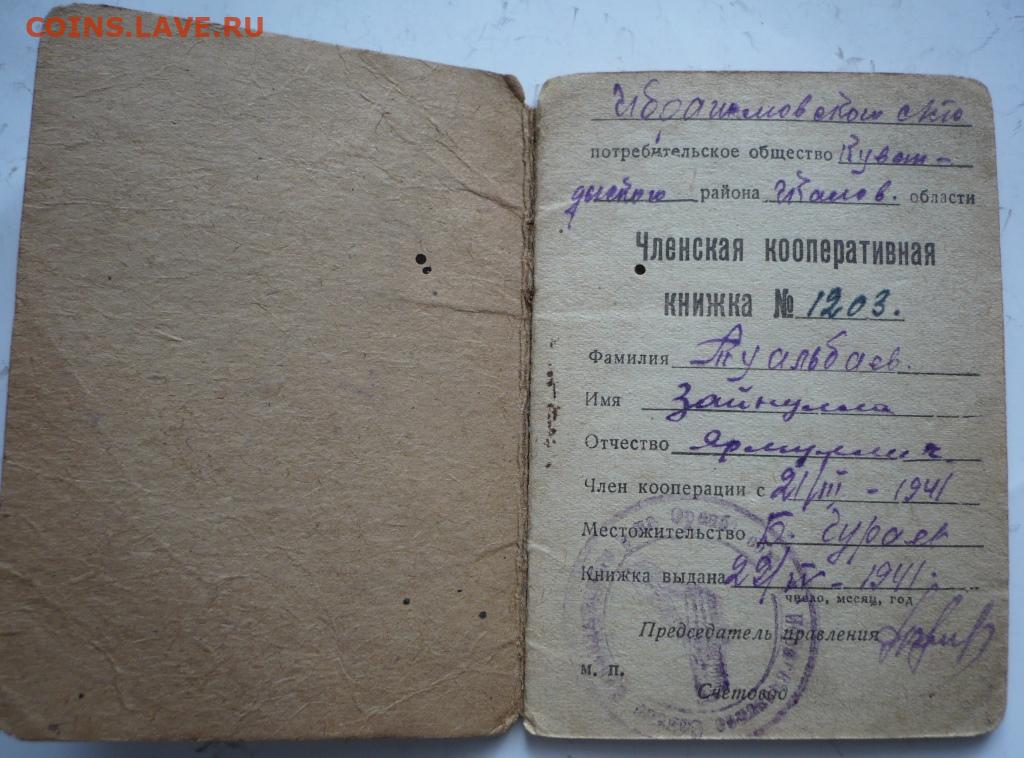 COINS.LAVE.RU
Ибрагимовское
потребительское общество Куван-
дыкского района Чкалов. области
Членская кооперативная
книжка № 1203.
Фамилия Туальбаев.
Имя Зайнулла
Отчество Ярмуллич
Член кооперации с 21/III - 1941
Местожительство Б. Чураев
Книжка выдана 29/IV - 1941.
число, месяц, год
Председатель правления
м. п.
Счетовод